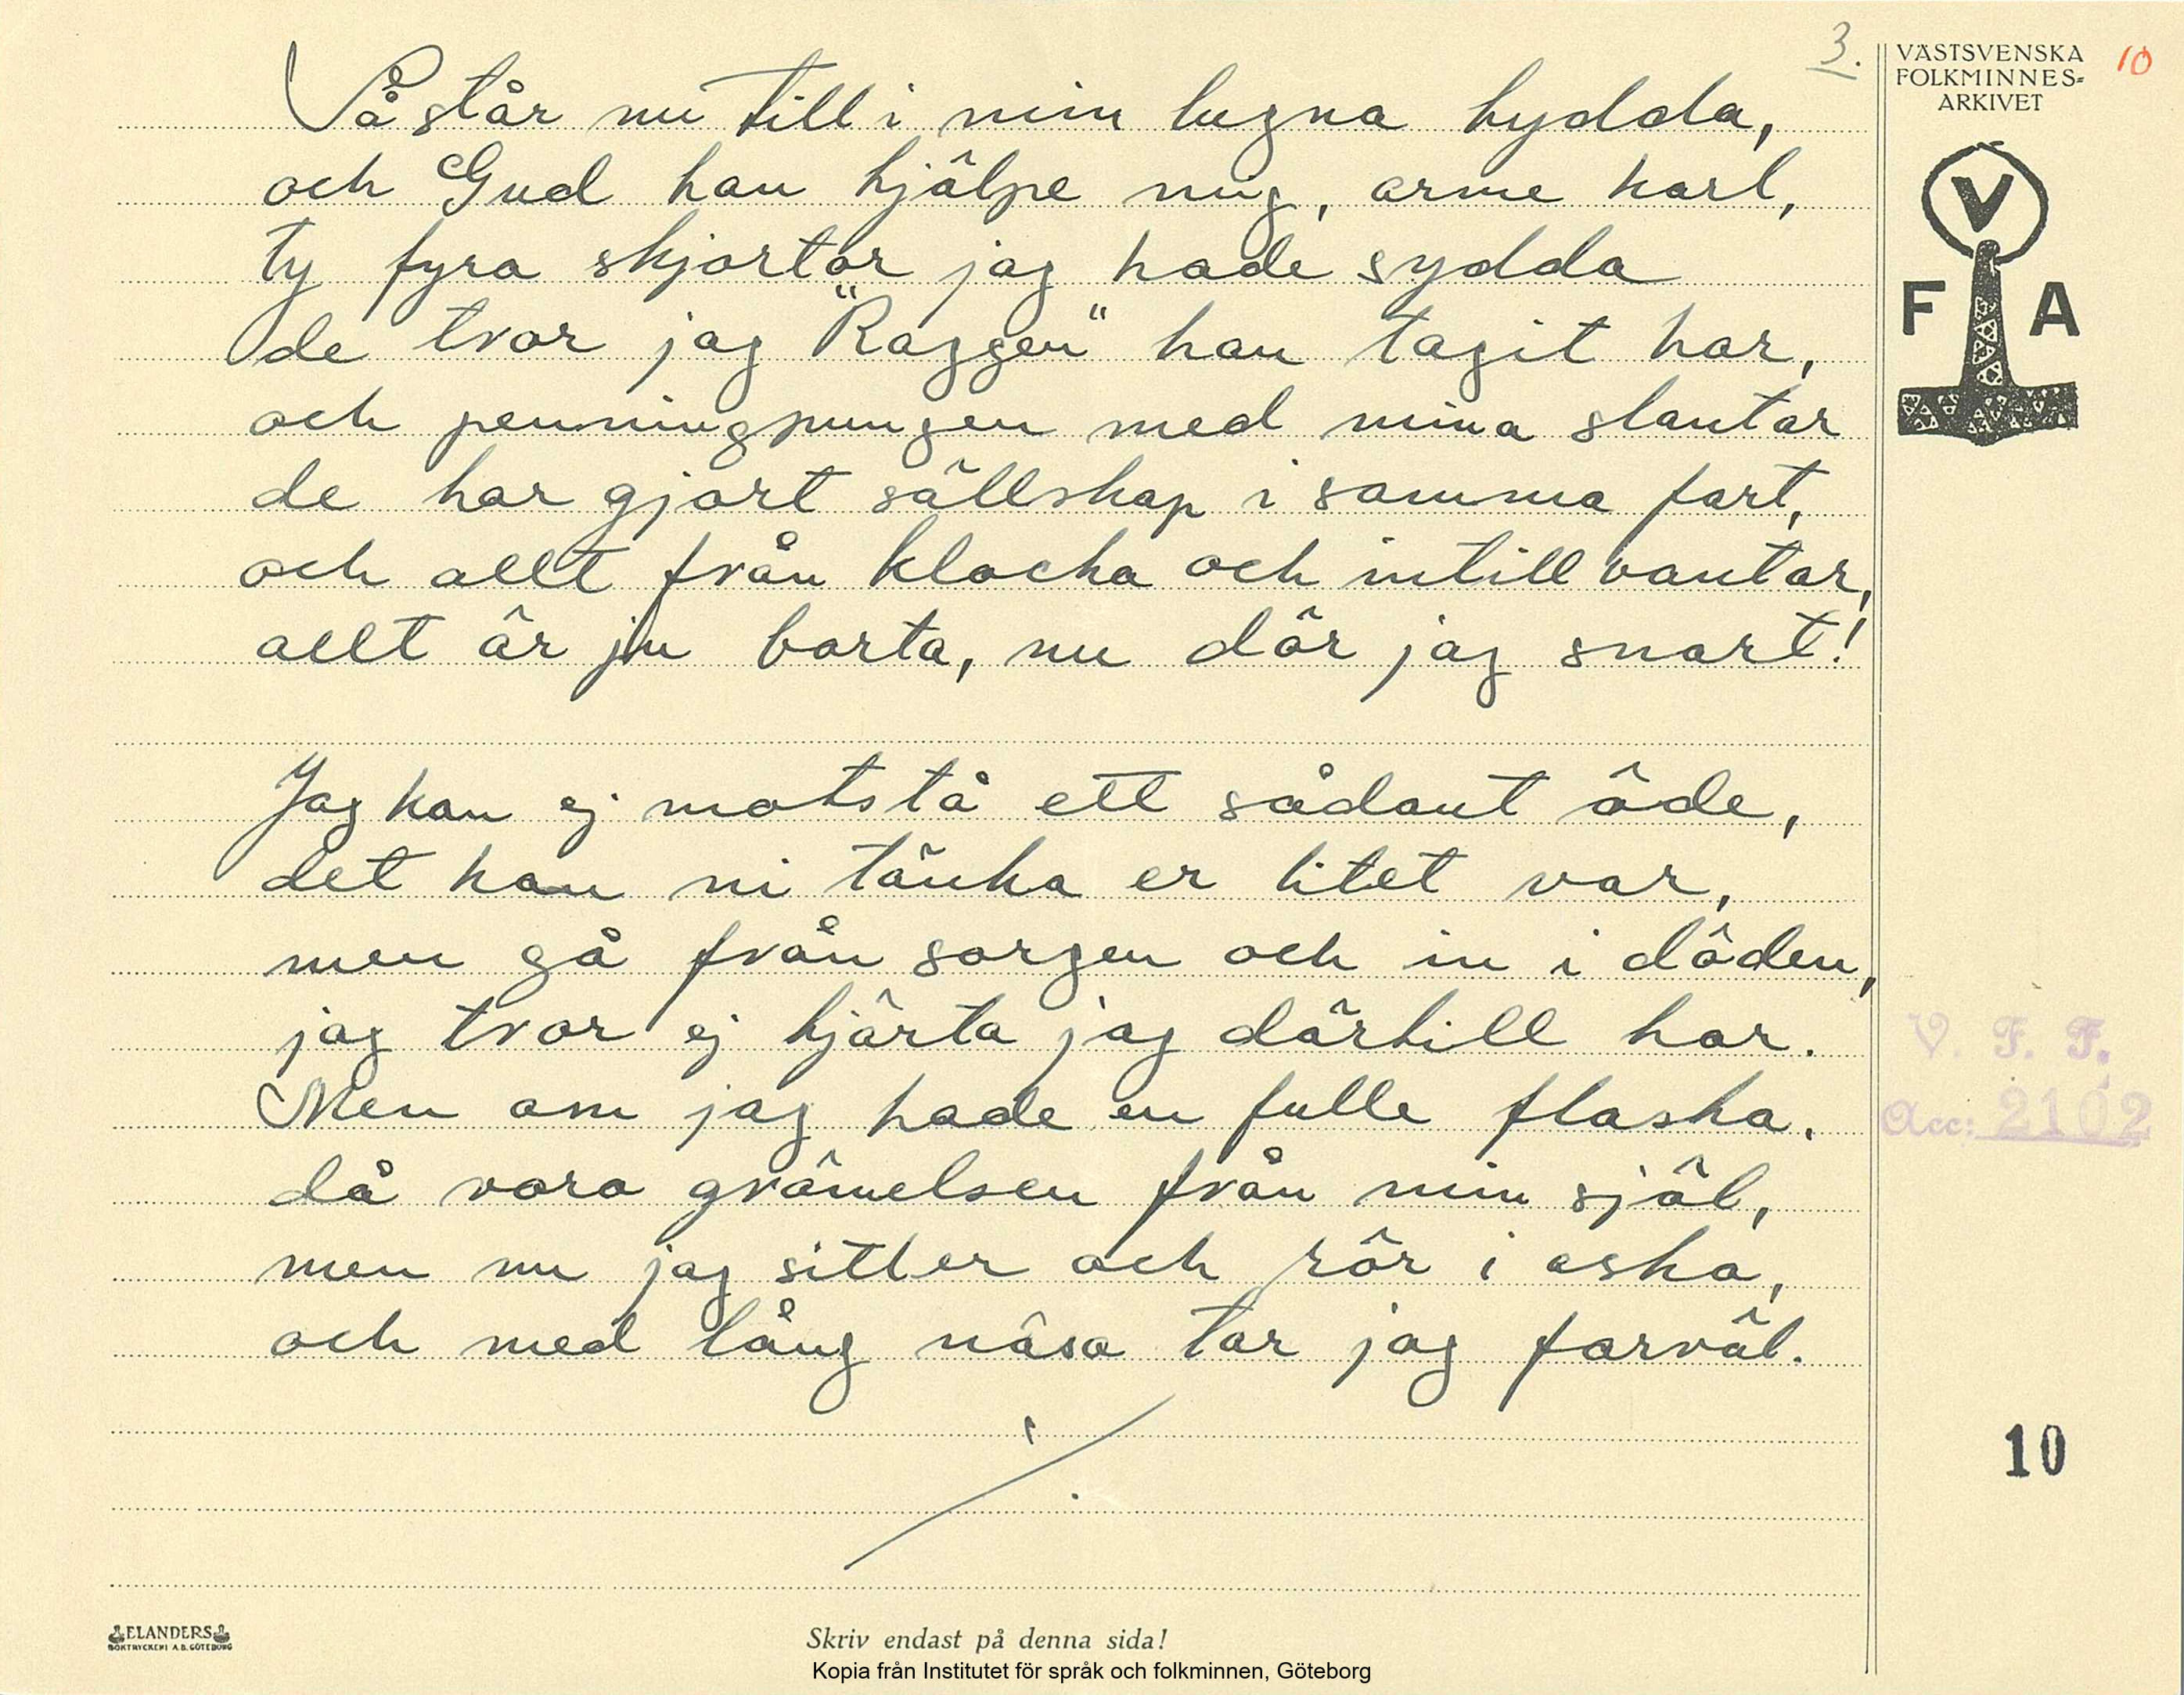 3.
VÄSTSVENSKA
FOLKMINNES-
ARKIVET
10
V
F A
Så står nu till i min lugna hydda,
och Gud han hjälpe mig, arme karl,
ty fyra skjortor jag hade sydda
de tror jag "Raggen" han tagit har,
och penningpungen med mina slantar
de har gjort sällskap i samma fart,
och allt från klocka och intill vantar,
allt är ju borta, nu dör jag snart!
Jag kan ej motstå ett sådant öde,
det kan ni tänka er litet var,
men gå från sorgen och in i döden,
jag tror ej hjärta jag därtill har.
Men om jag hade en fulle flaska,
då vore grämelsen från min själ,
men nu jag sitter och rör i aska,
och med lång näsa tar jag farväl.
V. F. F.
Acc: 2102
10
ELANDERS
BOKTRYCKERI A.B. GÖTEBORG
Skriv endast på denna sida!
Kopia från Institutet för språk och folkminnen, Göteborg